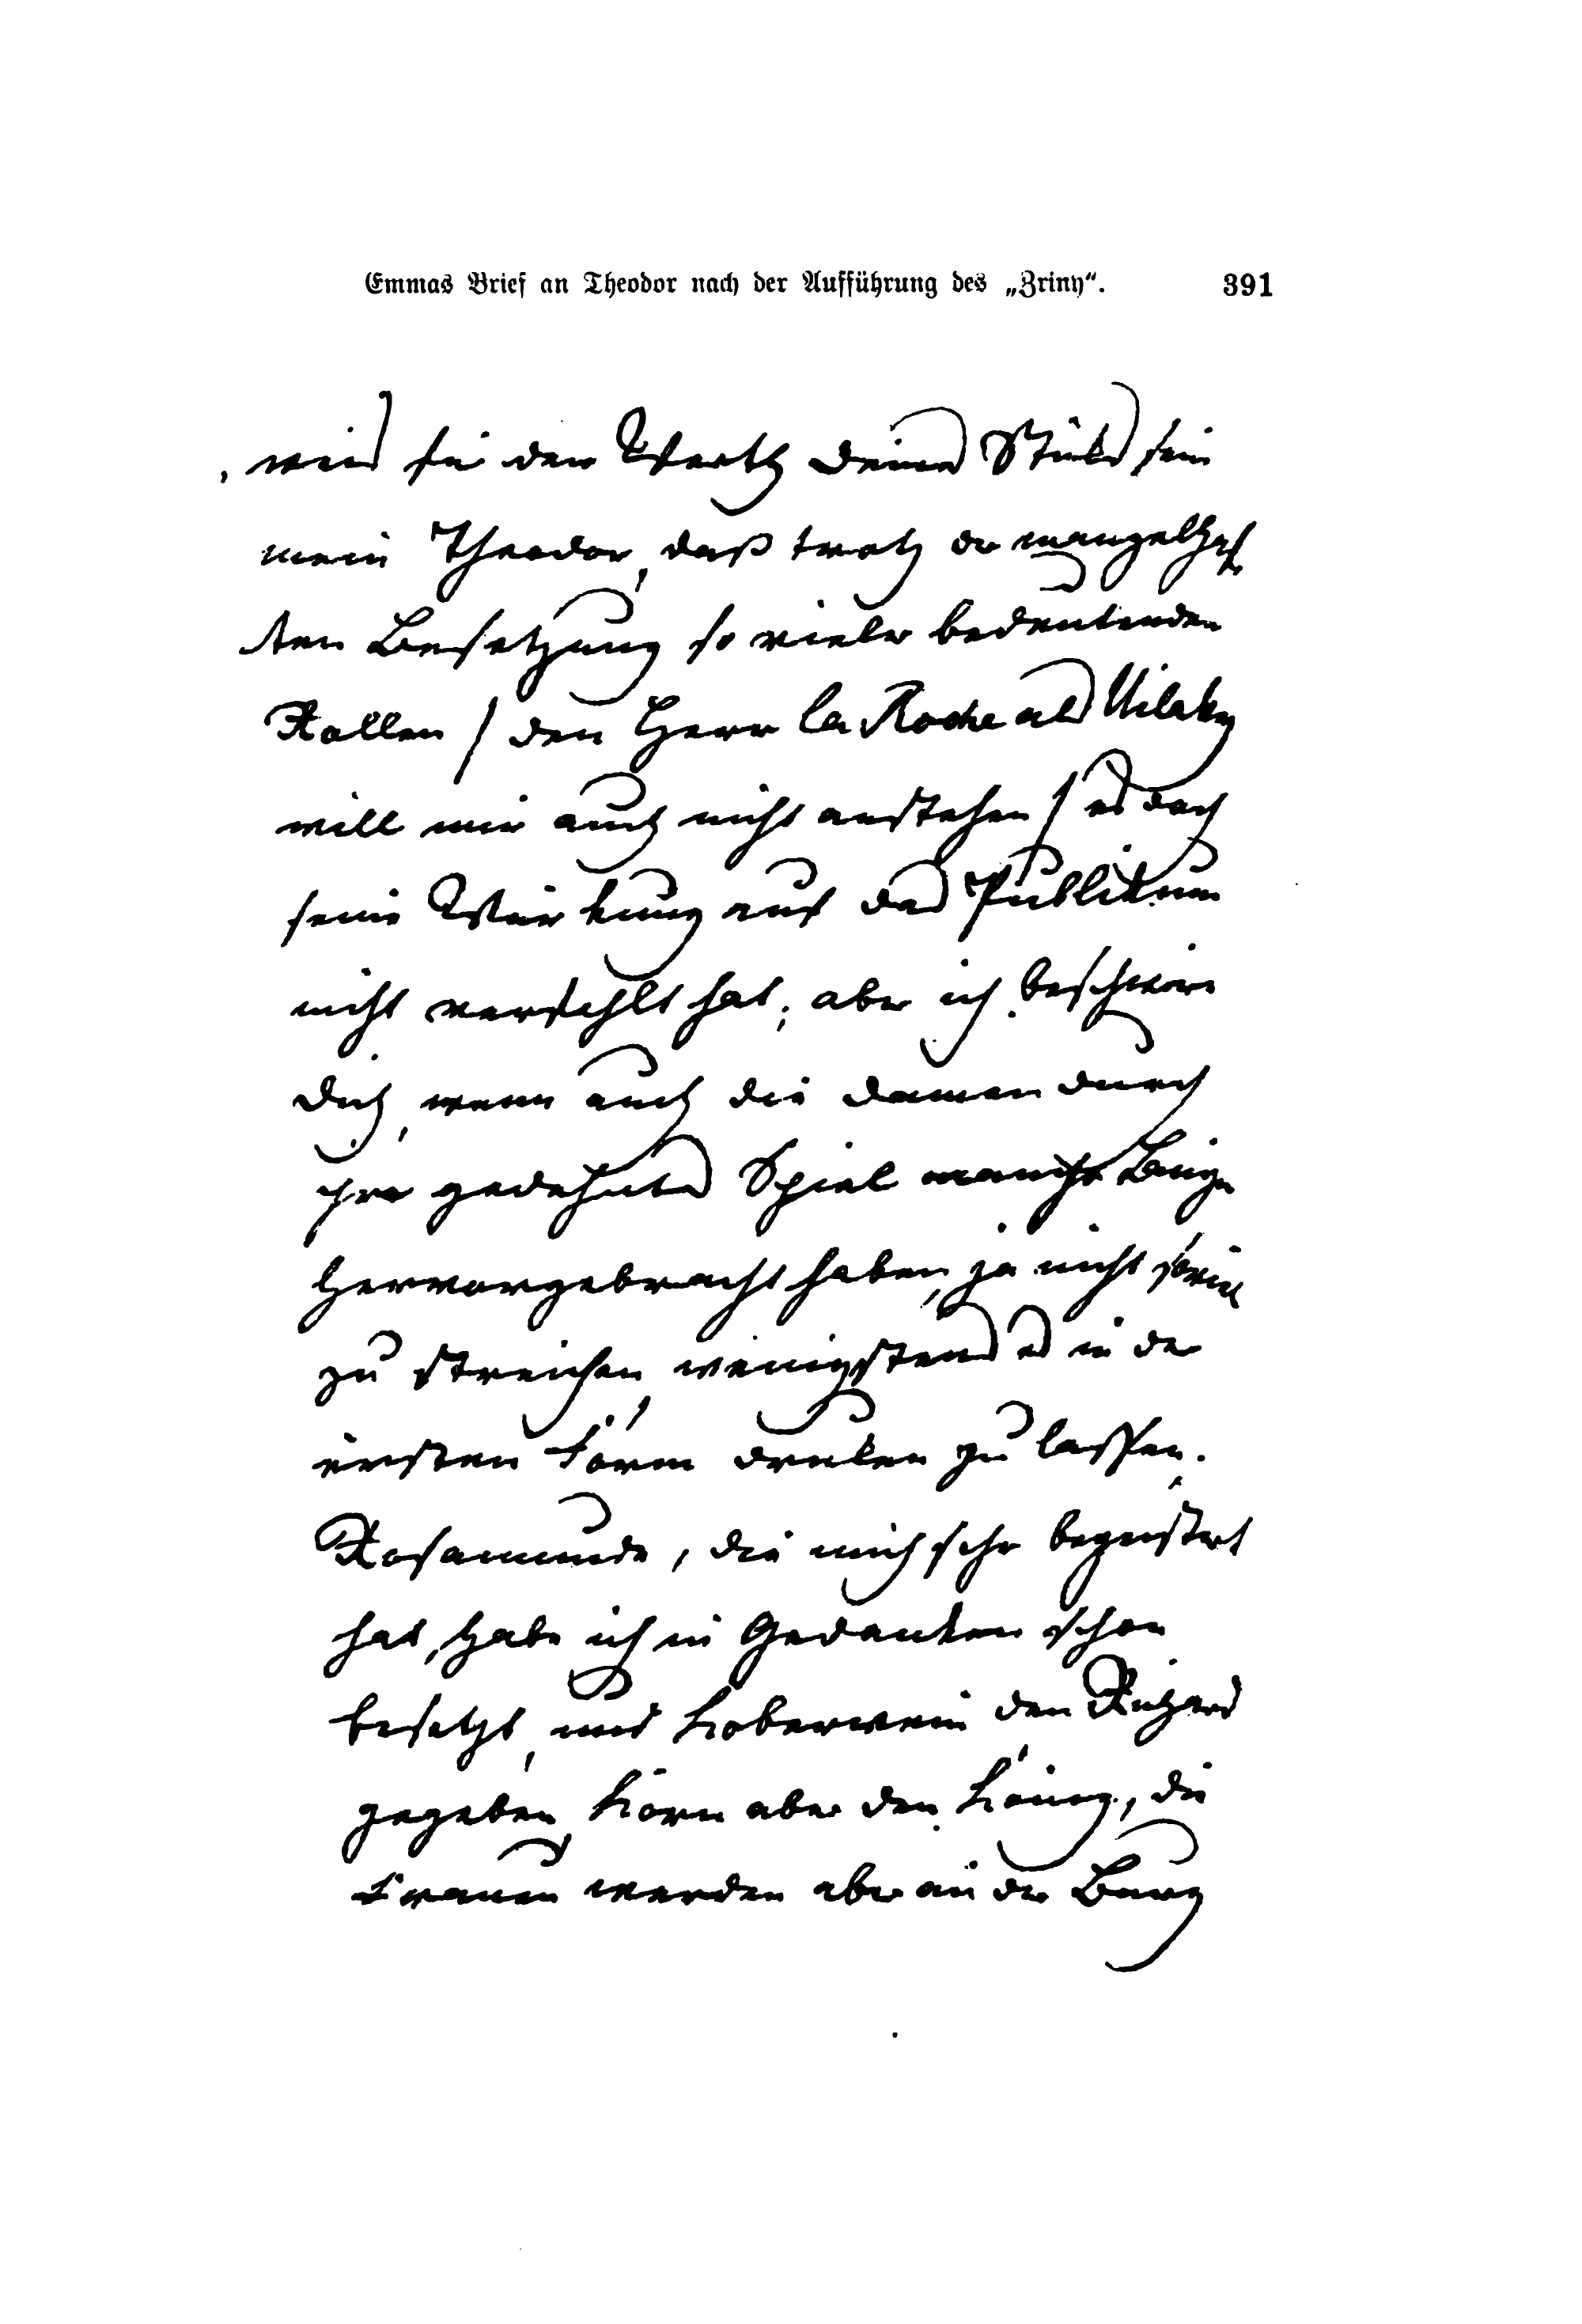 Emmas Brief an Theodor nach der Aufführung des „Zriny“. 391
für den Werth Deines Stücks sein
mein Theodor, daß trotz der mangelhaf
ten Besetzung so vieler bedeutenden
Rollen / den Herr la Roche als Vilaky
will mir auch nicht anstehen / es doch
seine Würkung auf das Publikum
nicht verfehlt hat; aber ich beschwöre
Dich, wenn auch die Damen durch
ihr gedehntes Spiel manche Länge
hervorgebracht haben, ja nicht
zu streichen, wenigstens es in der
ersten Form druken zu lassen.
Rosamunde, die mich sehr begeistert
hat, habe ich in Gedanken schon
besetzt, und Koberwein den Richard
gegeben, Korn aber den König, die
Frauen werden aber an der Burg